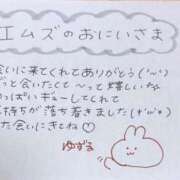 エムズのおにいさま
会いに来てくれてありがとう(˶'ᵕ'˶)
っと会いたくて〜っと嬉しいな
っぱいギューしてくれて
気持ちが落ち着きました(*ˊᵕˋ*)
た会いにきてね♡
ゆずる